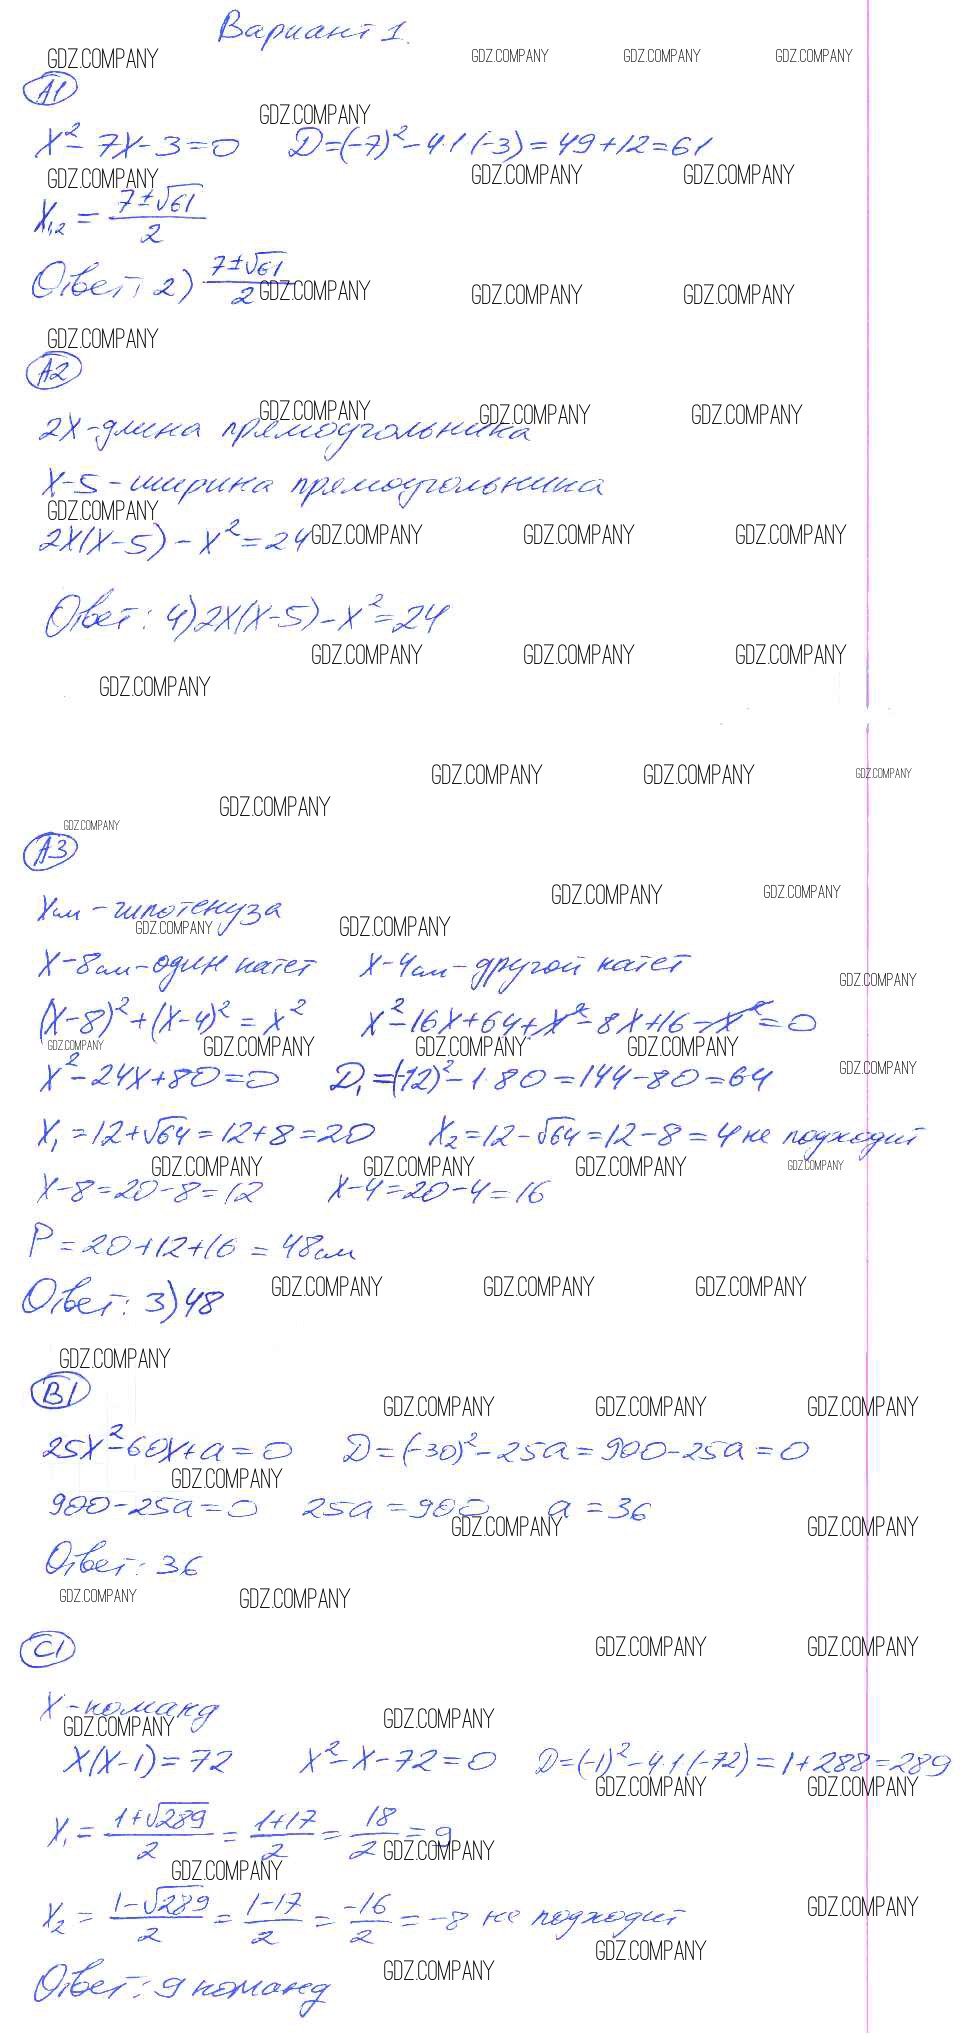 Вариант 1.
GDZ.COMPANY GDZ.COMPANY GDZ.COMPANY GDZ.COMPANY
А1
GDZ.COMPANY
x² - 7x - 3 = 0 D = (-7)² - 4·1·(-3) = 49 + 12 = 61
GDZ.COMPANY GDZ.COMPANY GDZ.COMPANY
x₁,₂ = (7 ± √61)/2
Ответ: 2) (7 ± √61)/2
GDZ.COMPANY GDZ.COMPANY GDZ.COMPANY
GDZ.COMPANY
А2
GDZ.COMPANY GDZ.COMPANY GDZ.COMPANY
2x - длина прямоугольника
x - 5 - ширина прямоугольника
GDZ.COMPANY
2x(x - 5) - x² = 24
GDZ.COMPANY GDZ.COMPANY GDZ.COMPANY
Ответ: 4) 2x(x - 5) - x² = 24
GDZ.COMPANY GDZ.COMPANY GDZ.COMPANY
GDZ.COMPANY
GDZ.COMPANY GDZ.COMPANY GDZ.COMPANY
GDZ.COMPANY
GDZ.COMPANY
А3
GDZ.COMPANY GDZ.COMPANY
x см - гипотенуза
GDZ.COMPANY GDZ.COMPANY
x - 8 см - один катет x - 4 см - другой катет
GDZ.COMPANY
(x - 8)² + (x - 4)² = x² x² - 16x + 64 + x² - 8x + 16 - x² = 0
GDZ.COMPANY GDZ.COMPANY GDZ.COMPANY GDZ.COMPANY
GDZ.COMPANY
x² - 24x + 80 = 0 D₁ = (-12)² - 1·80 = 144 - 80 = 64
x₁ = 12 + √64 = 12 + 8 = 20 x₂ = 12 - √64 = 12 - 8 = 4 не подходит
GDZ.COMPANY GDZ.COMPANY GDZ.COMPANY GDZ.COMPANY
x - 8 = 20 - 8 = 12 x - 4 = 20 - 4 = 16
P = 20 + 12 + 16 = 48 см
GDZ.COMPANY GDZ.COMPANY GDZ.COMPANY
Ответ: 3) 48
GDZ.COMPANY
В1
GDZ.COMPANY GDZ.COMPANY GDZ.COMPANY
25x² - 60x + a = 0 D = (-30)² - 25a = 900 - 25a = 0
GDZ.COMPANY
900 - 25a = 0 25a = 900 a = 36
GDZ.COMPANY GDZ.COMPANY
Ответ: 36
GDZ.COMPANY GDZ.COMPANY
С1
GDZ.COMPANY GDZ.COMPANY
x - команд
GDZ.COMPANY GDZ.COMPANY
x(x - 1) = 72 x² - x - 72 = 0 D = (-1)² - 4·1·(-72) = 1 + 288 = 289
GDZ.COMPANY GDZ.COMPANY
x₁ = (1 + √289)/2 = (1 + 17)/2 = 18/2 = 9
GDZ.COMPANY
GDZ.COMPANY
x₂ = (1 - √289)/2 = (1 - 17)/2 = -16/2 = -8 не подходит
GDZ.COMPANY
GDZ.COMPANY
GDZ.COMPANY
Ответ: 9 команд